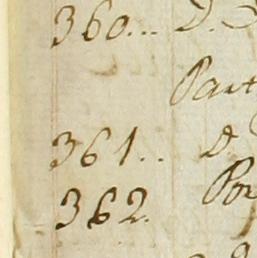 360... D.
Part
361.. D.
362. Por